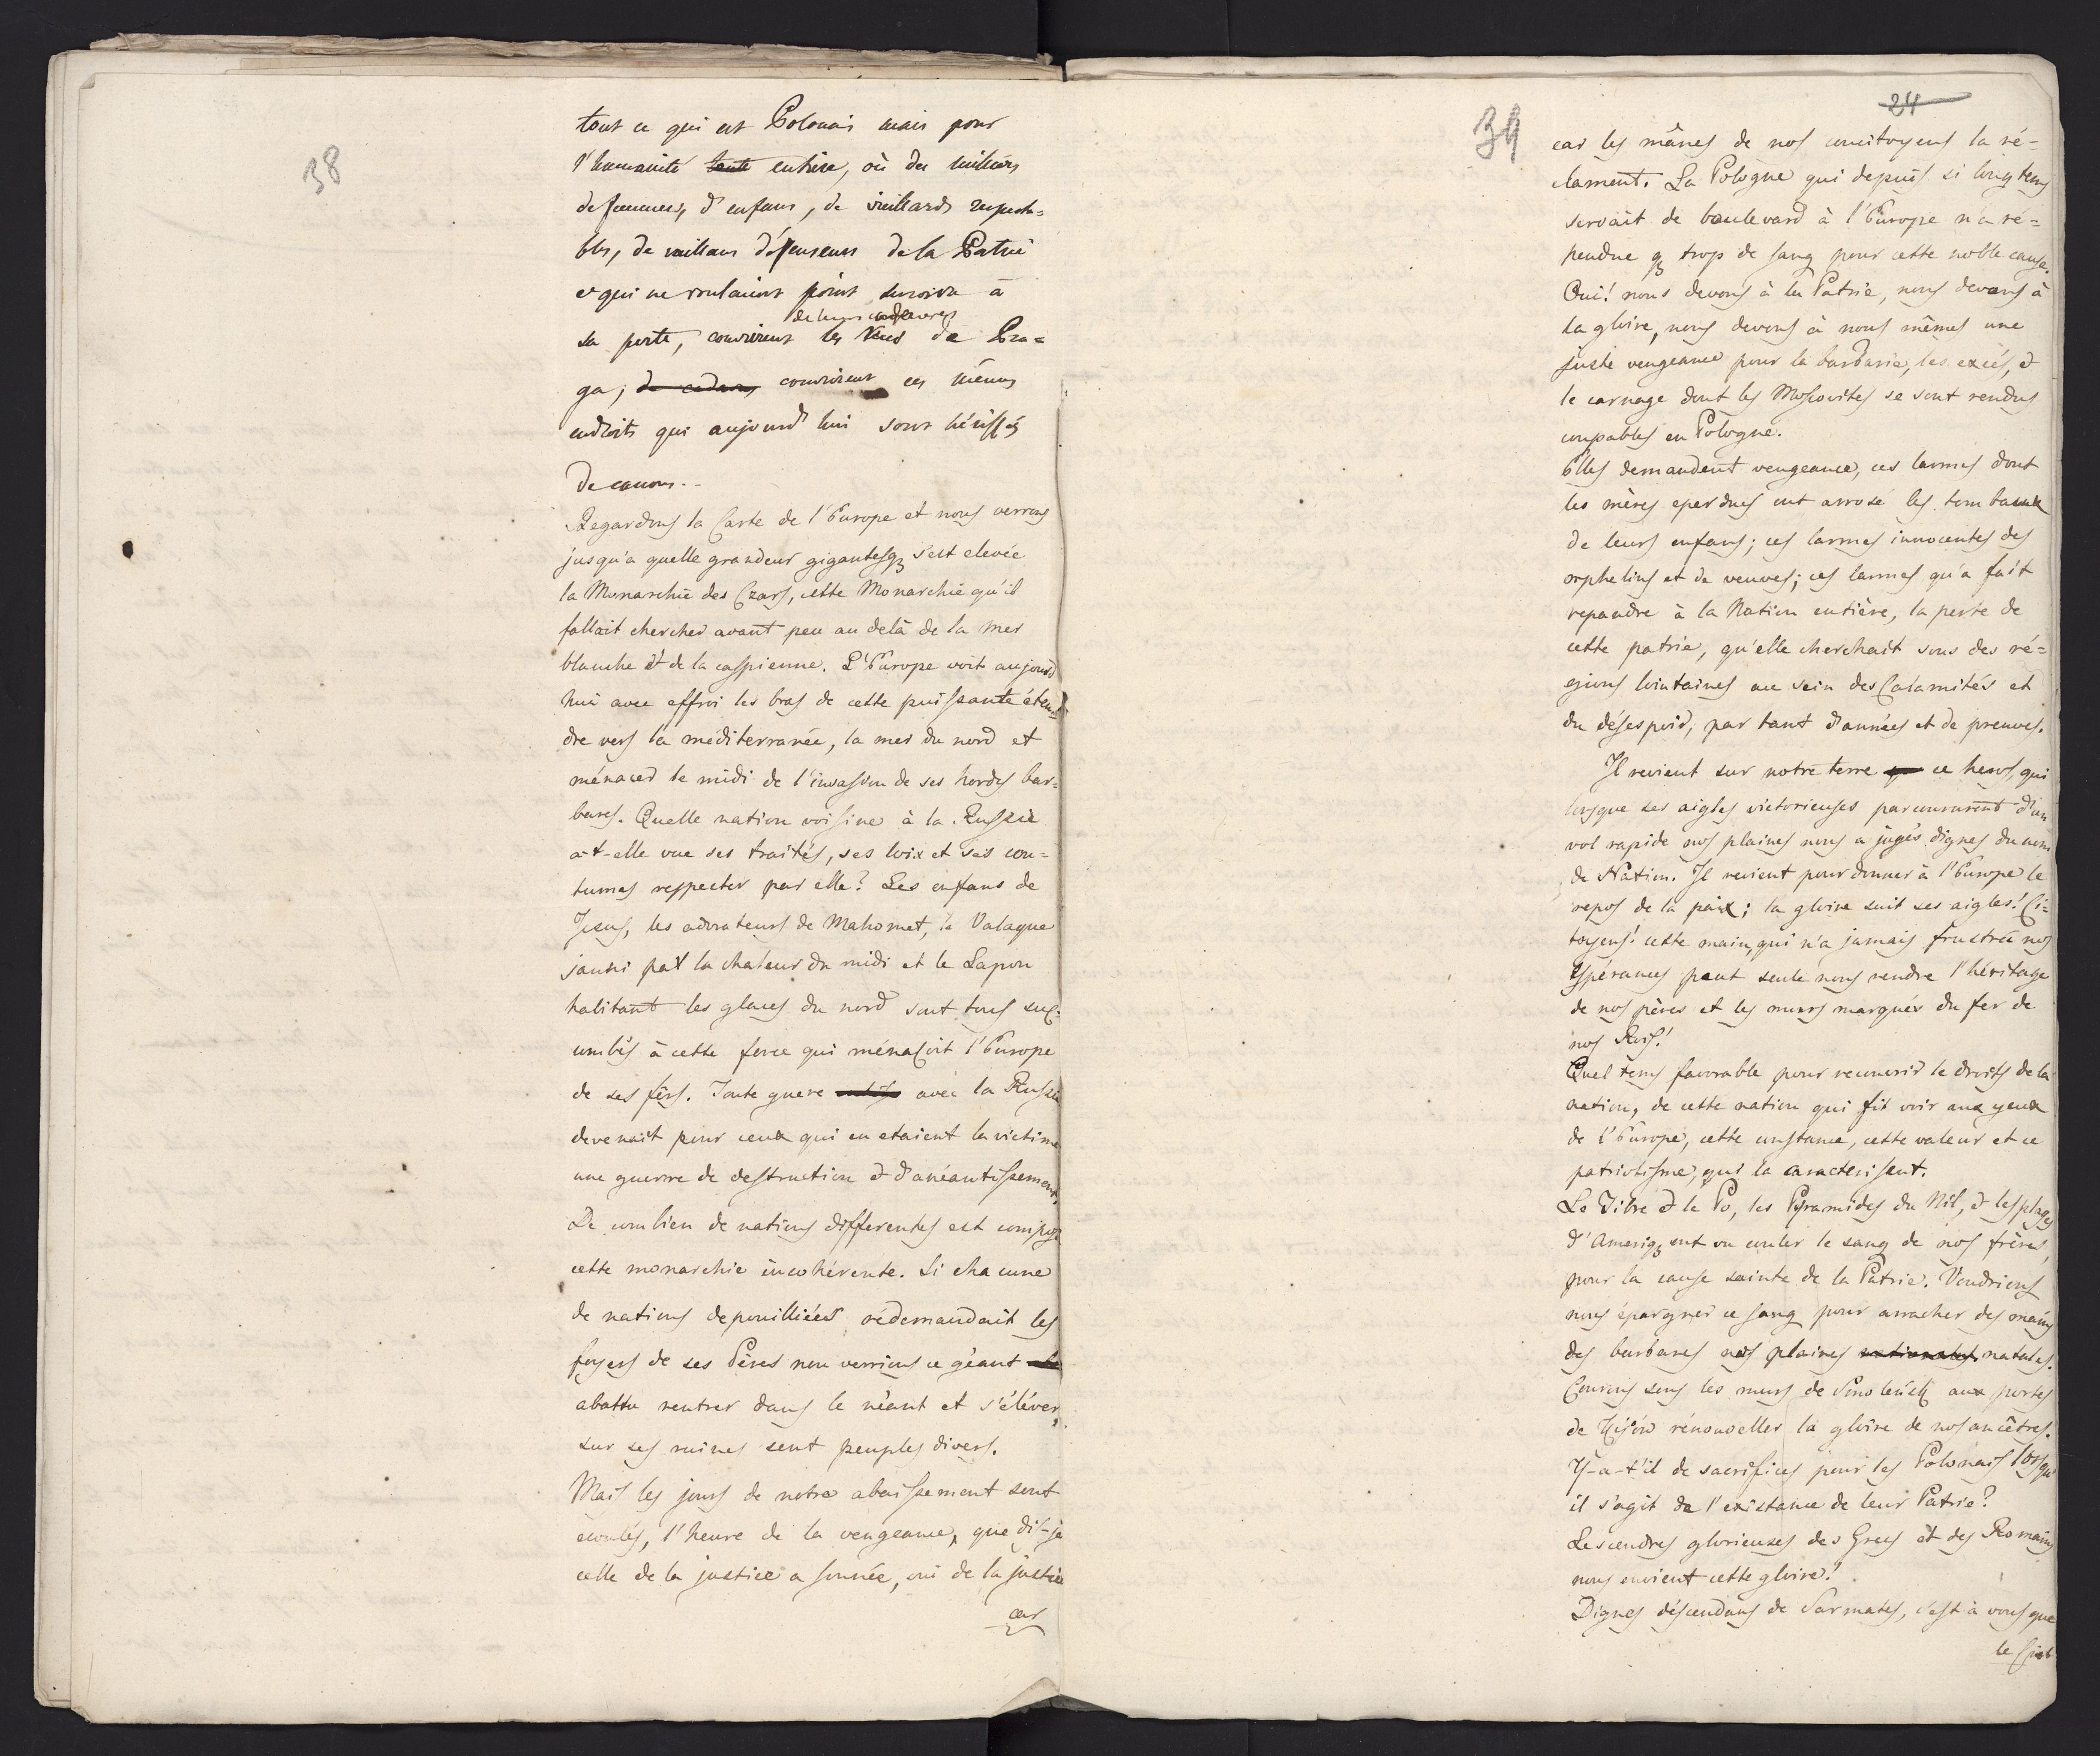 38
tout ce qui est Polonais mais pour
l'humanité toute entiere, où des milliers
de femmes, d'enfans, de vieillards respecta=
bles, de vaillans défenseurs de la Patrie
et qui ne voulaient point survivre à
de leurs cadavres
sa perte, couvrirent les rues de Pra=
ga; de cadavres couvrirent ces mêmes
endroits qui aujourd'hui sont hérissés
de canons..
Regardons la Carte de l'Europe et nous verrons
jusqu'a quelle grandeur gigantesq. s'est elevée
la Monarchie des Czars, cette Monarchie qu'il
falloit chercher avant peu au delà de la mer
blanche et de la caspienne. L'Europe voit aujourd
hui avec effroi les bras de cette puissante éten=
dre vers la méditerranée, la mer du nord et
ménacer le midi de l'invasion de ses hordes bar=
bares. Quelle nation voisine à la Russie
a-t-elle vue ses traités, ses loix et ses cou=
tumes respecter par elle? Les enfans de
Jesus, les adorateurs de Mahomet, le Valaque
jauni par la chaleur du midi et le Lapon
habitant les glaces du nord sont tous suc=
combés à cette force qui ménaçoit l'Europe
de ses fers. Toute guere avec la Russie
devenait pour ceux qui en etaient la victime
une guerre de destruction et d'anéantissement.
De combien de nations differentes est composé
cette monarchie incohérente. Si chacune
de nations depouilliées rédemandait les
foyers de ses Péres nou verrions ce géant
abattu rentrer dans le néant et s'éléver,
sur ses ruines cent peuples divers.
Mais les jours de notre abaissement sont
ecoulés, l'heure de la vengeance, que dis-je
celle de la justice a sonnée, oui de la justice
car
24
39
car les mânes de nos concitoyens la ré=
clament. La Pologne qui depuis si longtems
servait de boulevard à l'Europe n'a ré=
pendue q. trop de sang pour cette noble cause.
Oui! nous devons à la Patrie, nous devons à
la gloire, nous devons à nous mêmes une
juste vengeance pour la barbarie, les excés, et
le carnage dont les Moscovites se sont rendus
coupables en Pologne.
Elles demandent vengeance, ces larmes dont
les mères eperdues ont arrosé les tombaux
de leurs enfans; ces larmes innocentes des
orphelins et de veuves; ces larmes qu'a fait
repandre à la Nation entière, la perte de
cette patrie, qu'elle cherchait sous des ré=
gions lointaines au sein des Calamités et
du désespoir, par tant d'années et de preuves.
Il revient sur notre terre ce heros, qui
lorsque ses aigles victorieuses parcoururent d'un
vol rapide nos plaines nous a jugés dignes du nom
de Nation. Il revient pour donner à l'Europe le
repos de la paix; la gloire suit ses aigles! Ci=
toyens! cette main, qui n'a jamais frustrée nos
espérances peut seule nous rendre l'héritage
de nos pères et les murs marqués du fer de
nos Rois!
Quel tems favorable pour recouvrir le droits de la
nation, de cette nation qui fit voir aux yeux
de l'Europe, cette constance, cette valeur et ce
patriotisme, qui la caractérisent.
Le Tibre et le Po, les Pyramides du Nil, et les plages
d'Ameriq. ont vu couler le sang de nos frères,
pour la cause sainte de la Patrie. Voudrions
nous épargner ce sang pour arracher des mains
des barbares nos plaines nationales natales.
Courons sous les murs de Smoleńsk aux portes
de Kijów rénouveller la gloire de nos ancêtres.
Y-a-t'il de sacrifices pour les Polonais lorsqu'
il s'agit de l'existance de leur Patrie?
Les cendres glorieuses des Grecs et des Romains
nous envient cette gloire!
Dignes déscendans de Sarmates, c'est à vous que
le